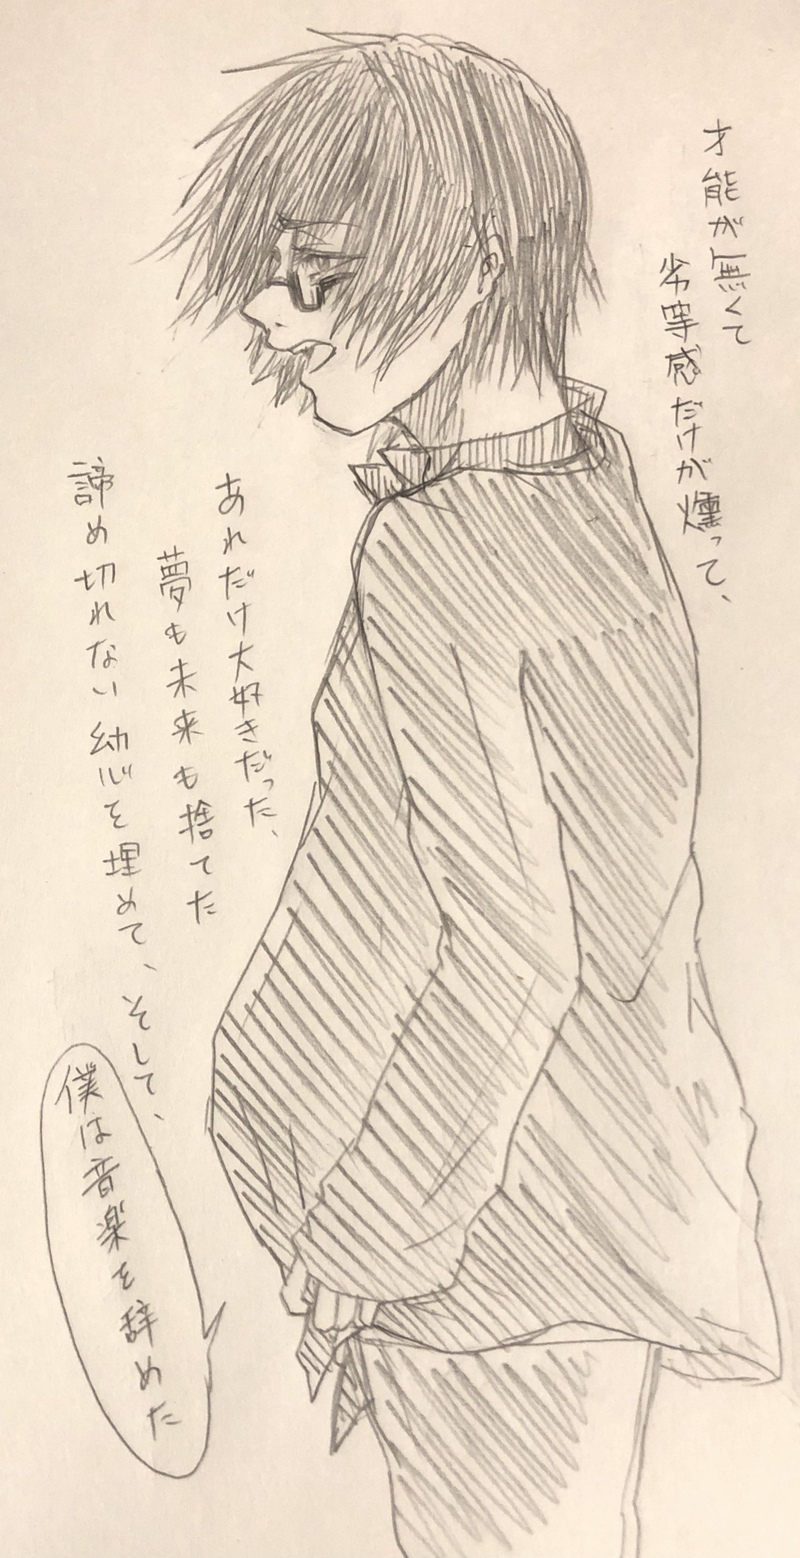 才能が無くて
劣等感だけが燻って、
あれだけ大好きだった、
夢も未来も捨てた
諦め切れない幼心を埋めて、そして、
僕は音楽を辞めた